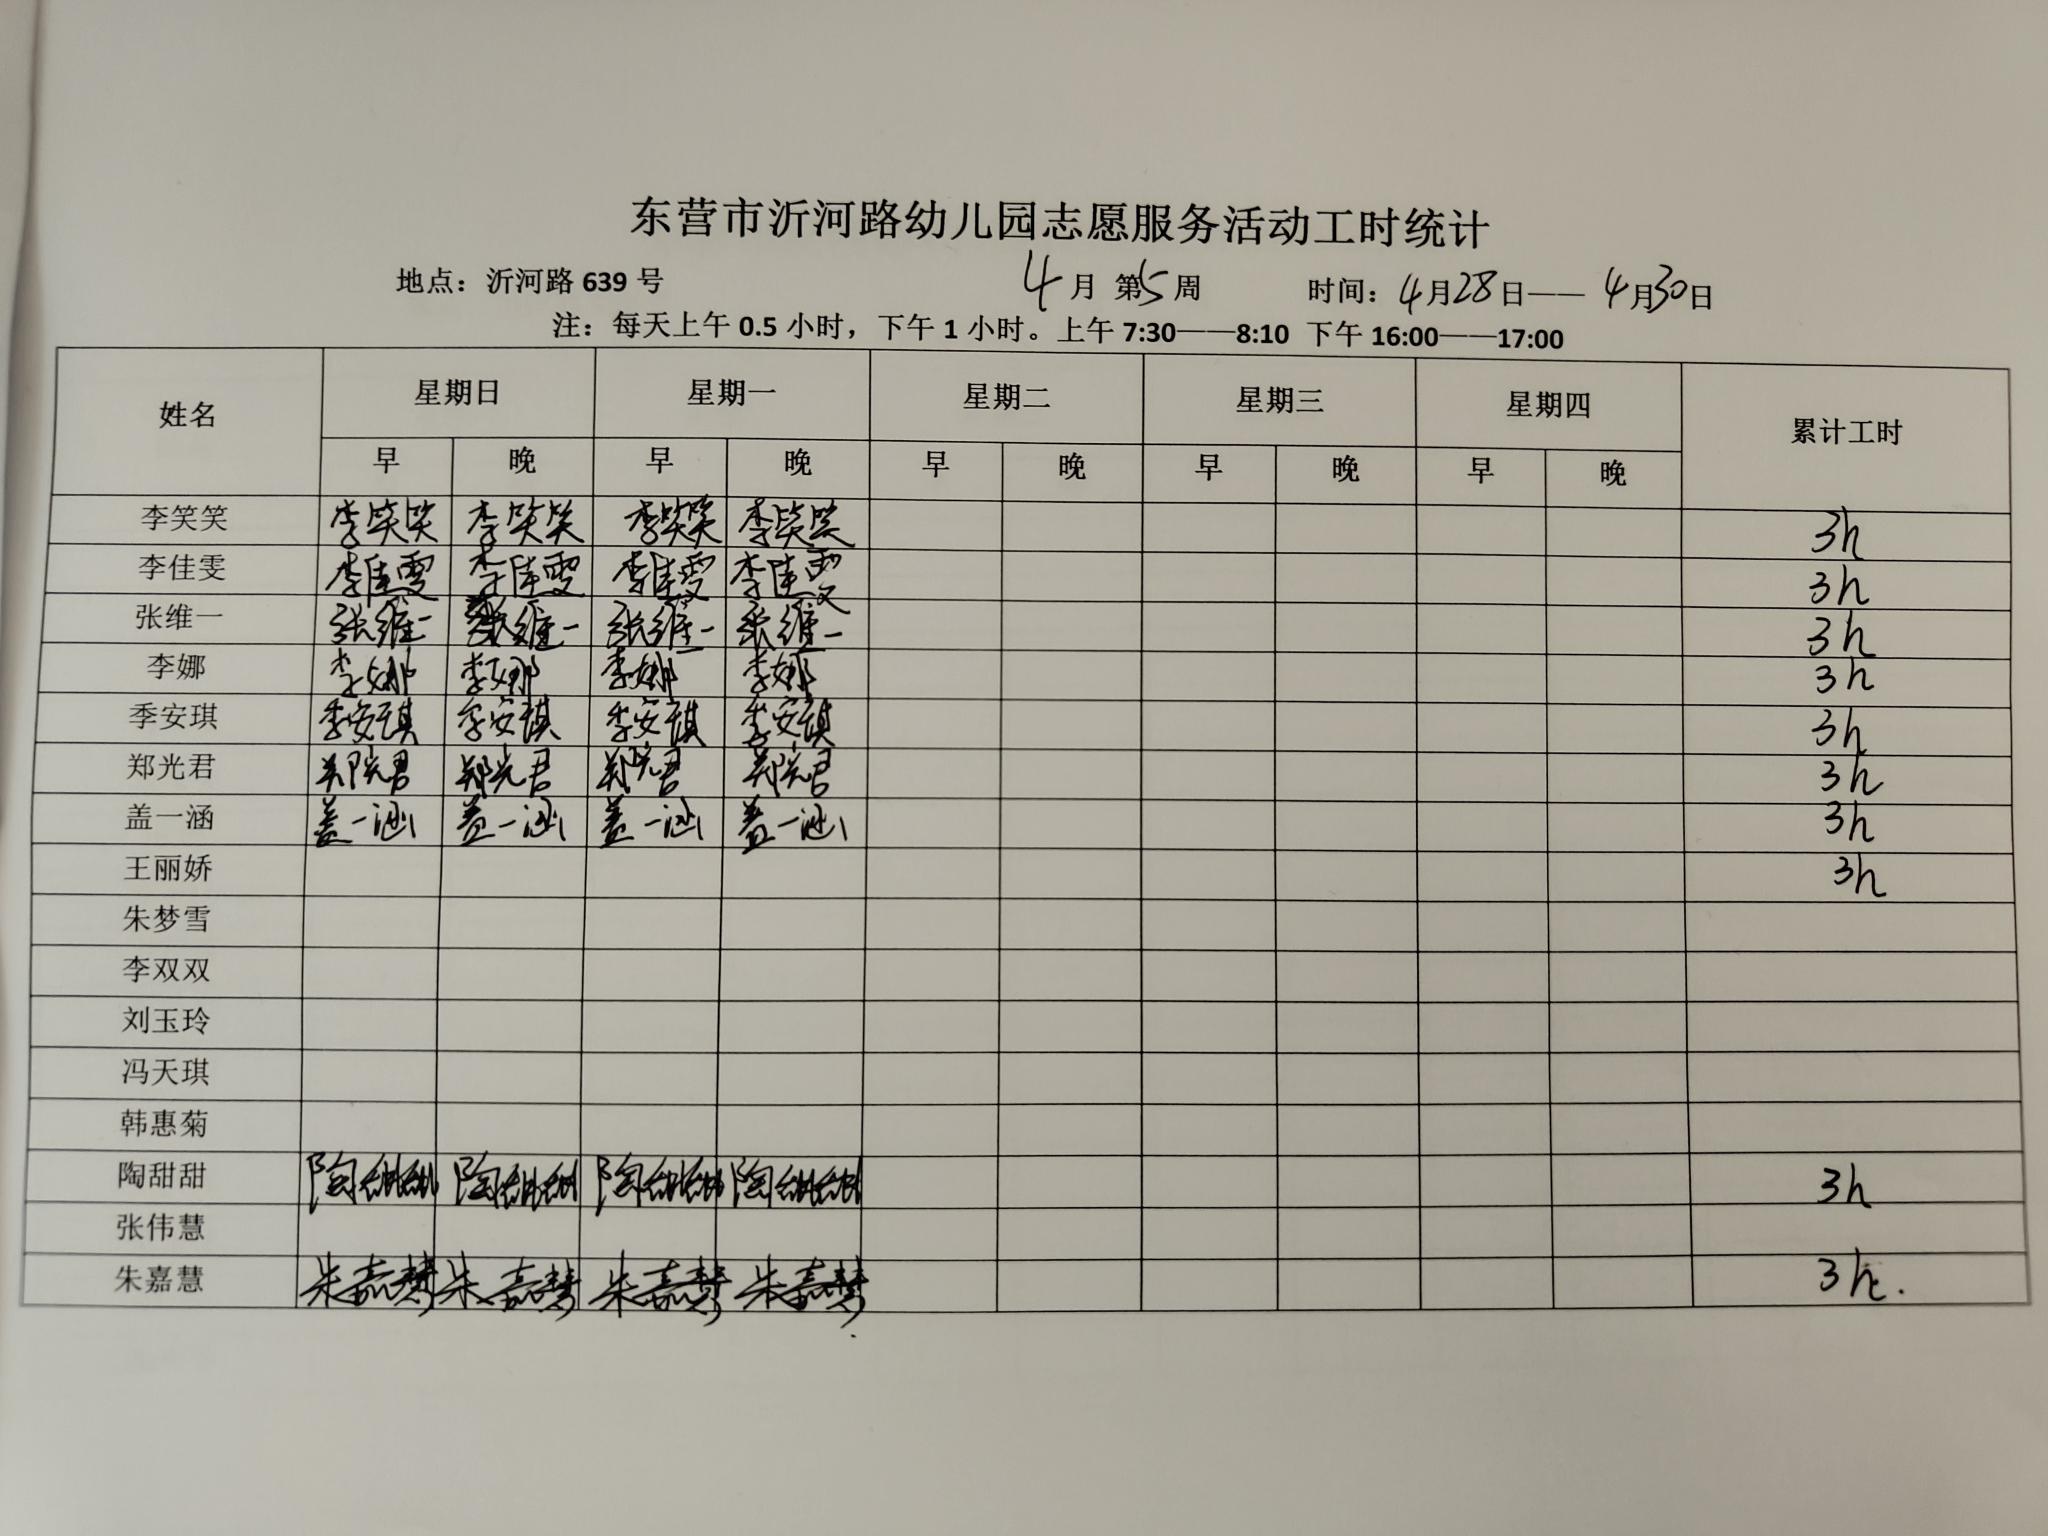 东营市沂河路幼儿园志愿服务活动工时统计
地点：沂河路 639 号 4月 第5周 时间：4月28日——4月30日
注：每天上午 0.5 小时，下午 1 小时。上午 7:30——8:10 下午 16:00——17:00
姓名 星期日 星期一 星期二 星期三 星期四 累计工时
早 晚 早 晚 早 晚 早 晚 早 晚
李笑笑 李笑笑 李笑笑 李笑笑 李笑笑 3h
李佳雯 李佳雯 李佳雯 李佳雯 李佳雯 3h
张维一 张维一 张维一 张维一 张维一 3h
李娜 李娜 李娜 李娜 李娜 3h
季安琪 季安琪 季安琪 季安琪 季安琪 3h
郑光君 郑光君 郑光君 郑光君 郑光君 3h
盖一涵 盖一涵 盖一涵 盖一涵 盖一涵 3h
王丽娇 3h
朱梦雪
李双双
刘玉玲
冯天琪
韩惠菊
陶甜甜 陶甜甜 陶甜甜 陶甜甜 陶甜甜 3h
张伟慧
朱嘉慧 朱嘉慧 朱嘉慧 朱嘉慧 朱嘉慧 3h.